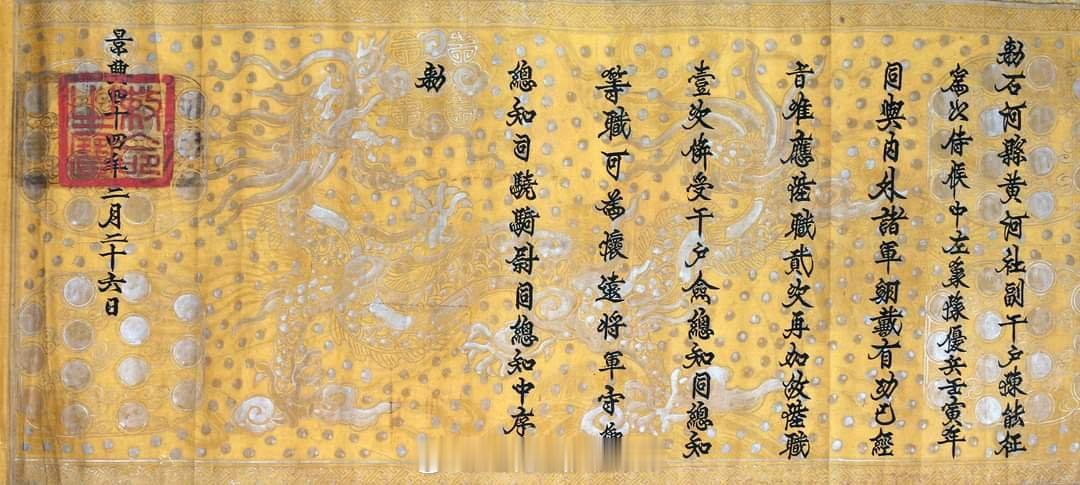 勅石河縣黄河社副千戶陳能征
為以侍候中左隊優兵壬寅年
同與内外諸軍翊戴有功已經
旨准應陞職貳次再加改陞職
壹次併受千戶僉總知同總知
等職可為懷遠将軍守禦
總知司驍騎尉同總知中序
勅
景興四十四年二月二十六日